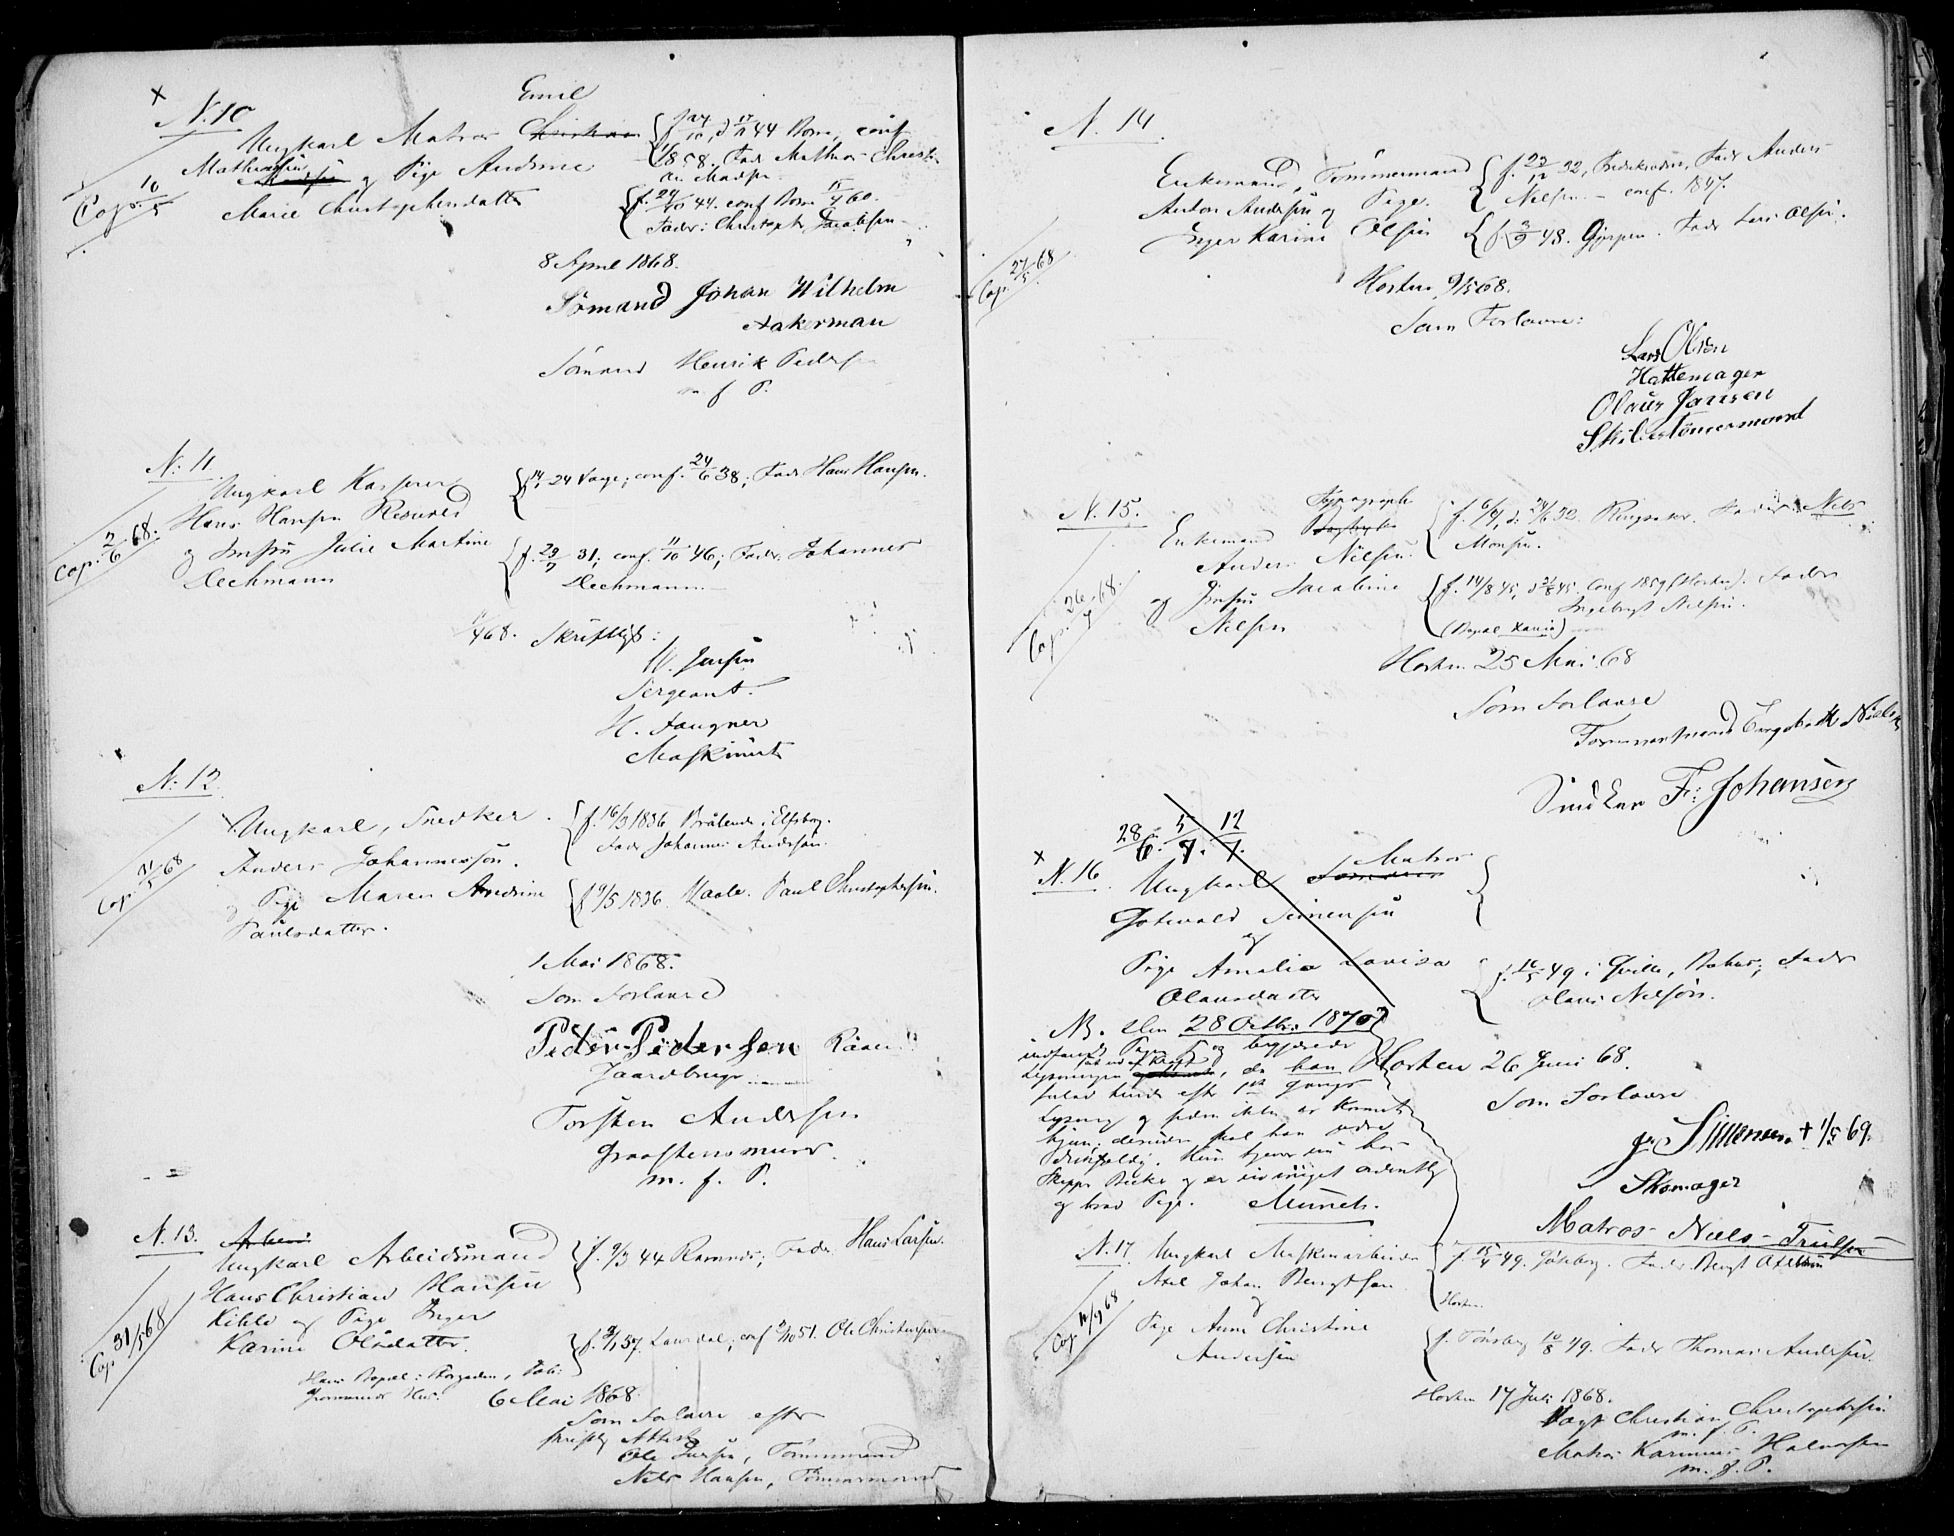 N. 10
Emil
Ungkarl Matros Christian
Mathiassen
Madsen og Pige Andrine
Marie Christophersdatter
Cop. 10/5
f. 24/10, d. 44 Borre, conf.
1858. Fader Mathias Christi-
an Madsen
f. 24/10 44. conf. Borre 15/4 60.
Fader: Christoph. Jacobsen
8 April 1868.
Sömand Johan Wilhelm
Aakerman
Sömand Henrik Peders
m. f. P.
N. 11
Ungkarl Kasserer
Hans Hansen
og Julie Martine
Lechmann
Cop. 2/6 68.
24 Vaage; conf. 24/6 38; Fader Hans Hansen.
f. 29/7 31; conf. 11/10 46; Fader Johannes
Lechmann
/4 68. Skriftligt:
W. Jensen
Sergeant.
H. Faugner
Maskinist
N. 12
Ungkarl, Snedker
Anders Johannessön.
og Pige Maren Andrine
Paulsdatter.
Cop. /5 68
f. 16/3 1836 i Elfsborg.
Fader Johannes Andersön.
f. 9/5 1836 Vaale. Paul Christophersen.
1 Mai 1868.
Som Forlovere
Peder Pedersen Raaen
Gaardbruger
Torsten Andersen
Graastensmurer.
m. f. P.
N. 13.
Arbeid
Ungkarl Arbeidsmand
Hans Christian Hansen
Kihle og Pige Inger
Karine Olsdatter.
Cop. 31/5 68
f. 9/3 44 Ramnes; Fader Hans Larsen.
f. 37. Laurdal; conf. /10 51. Ole Christensen
Hans Bopæl: Storgaden,
6 Mai 1868
Som Forlovere efter
skriftlig Attest
Ole Jensen, Tömmermand
Nils Hansen, Tömmermand
N. 14
Enkemand, Tömmermand
Anton Andersen og Pige
Inger Karine Olsen
Cop. 27/5 68
f. 22/12 32, Fredriksværn, Fader Anders
Nilsen. conf. 1847.
f. 2/9 43. Gjerpen. Fader Lars Olsen.
Horten 9/5 68.
Som Forlovere:
Lars Olsen
Hattemager
Olaus Jansen
Skibstömermand
N. 15.
Typograph
Enkemand
Anders Nielsen.
og Jomfru Jacobine
Nilsen
Cop. 26/7 68.
f. 6/4, d. 24/6 32 Ringsaker. Fader Nels
Monsen.
f. 14/8 45, d. 45. Conf. 1859 (Horten). Fader
Ingebregt Nilsen.
Horten 25 Mai 68
Som Forlovere
Tömmermand Engebrekt Niels
Snedker Fr: Johansen
28/6. 5/7. 12/7.
N. 16
Matros
Ungkarl Sömand
Gotwald Simensen
og
Pige Amalia Lovisa
Olausdatter
f. 16/5 49 i Qville, Bohus; Fader
Olaus Nilsön.
NB. Den 28 Octbr. 1870
indfandt Pigen sig og begjærede
Lysningen, da han
forlod hende efter Gangs
Lysning og siden ikke er kommet
hjem; desuden skal han være
drikfældig. Hun tjener nu hos
Skipper Bjerke og er en meget ordentlig
og brav Pige. Munch.
Horten 26 Juni 68.
Som Forlovere
Simensen + 1/5 69.
Skomager
Matros Niels Trulsen
N. 17
Ungkarl Maskinarbeider
Axel Johan Bengtson
og
Pige Anne Christine
Andersen
Cop. 11/9 68
f. 15/4 49. Göteborg. Fader Bengt Axelson
Horten
f. Tönsberg 10/8 49. Fader Thomas Andersen.
Horten 17 Juli 1868.
Vagt Christian Christophersen
m. f. P.
Matros Karinius Halvorsen
m. f. P.